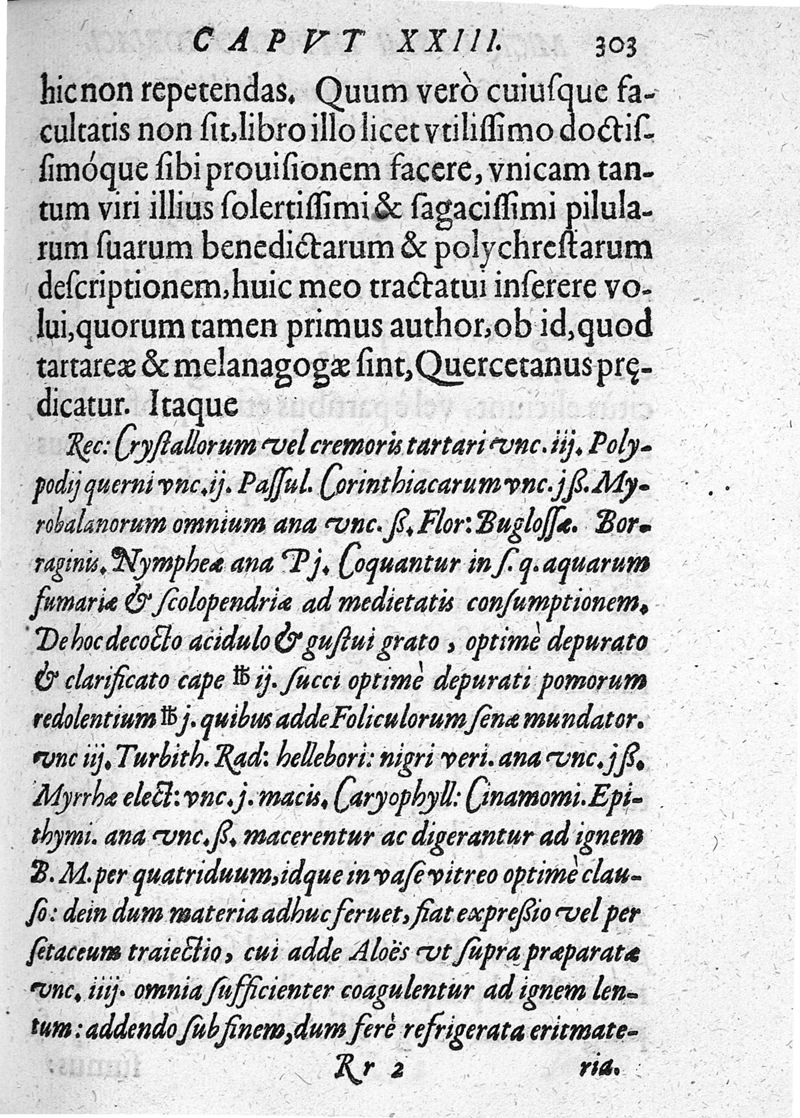 CAPVT XXIII. 303
hic non repetendas. Quum verò cuiuſque fa-
cultatis non ſit, libro illo licet vtiliſſimo doctiſ-
ſimóque ſibi prouiſionem facere, vnicam tan-
tum viri illius ſolertiſſimi & ſagaciſſimi pilula-
rum ſuarum benedictarum & polychreſtarum
deſcriptionem, huic meo tractatui inſerere vo-
lui, quorum tamen primus author, ob id, quod
tartareæ & melanagogæ ſint, Quercetanus prę-
dicatur. Itaque
Rec: Cryſtallorum vel cremoris tartari vnc. iij. Poly-
podij querni vnc. ij. Paſſul. Corinthiacarum vnc. jß. My-
robalanorum omnium ana vnc. ß. Flor: Bugloſſæ. Bor-
raginis. Nympheæ ana P j. Coquantur in ſ. q. aquarum
fumariæ & ſcolopendriæ ad medietatis conſumptionem.
De hoc decocto acidulo & guſtui grato, optimè depurato
& clarificato cape ℔ ij. ſucci optimè depurati pomorum
redolentium ℔ j. quibus adde Foliculorum ſenæ mundator.
vnc iij. Turbith. Rad: hellebori: nigri veri. ana vnc. jß.
Myrrhæ elect: vnc. j. macis. Caryophyll: Cinamomi. Epi-
thymi. ana vnc. ß. macerentur ac digerantur ad ignem
B. M. per quatriduum, idque in vaſe vitreo optimè clau-
ſo: dein dum materia adhuc feruet, fiat expreßio vel per
ſetaceum traiectio, cui adde Aloës vt ſupra præparatæ
vnc. iiij. omnia ſufficienter coagulentur ad ignem len-
tum: addendo ſub finem, dum ferè refrigerata erit mate-
Rr 2 ria.